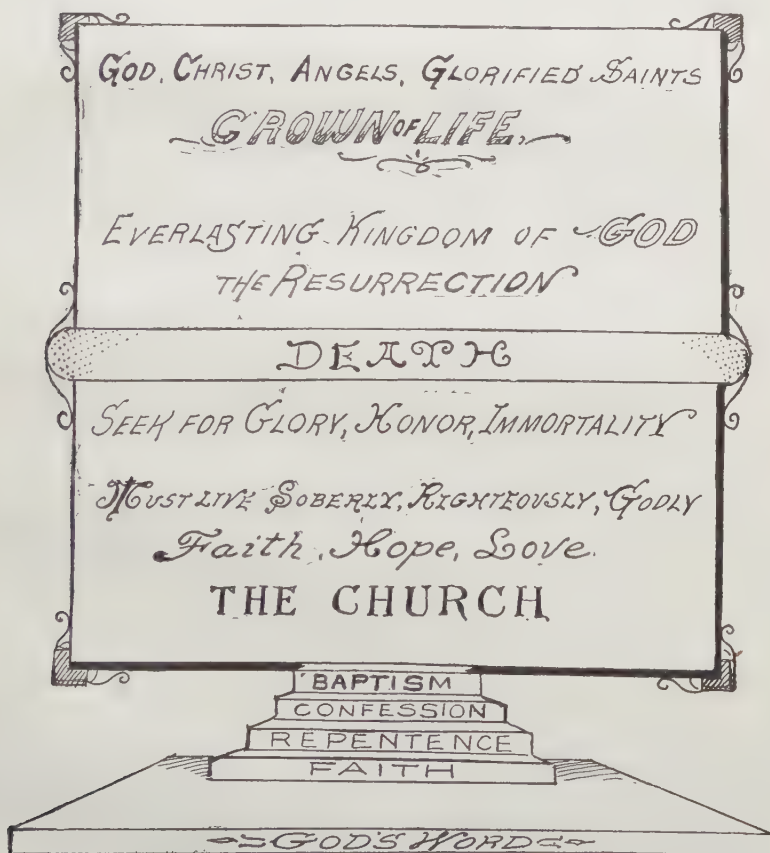 GOD, CHRIST, ANGELS, GLORIFIED SAINTS
CROWN OF LIFE.
EVERLASTING KINGDOM OF GOD
THE RESURRECTION
DEATH
SEEK FOR GLORY, HONOR, IMMORTALITY
MUST LIVE SOBERLY, RIGHTEOUSLY, GODLY
Faith, Hope, Love.
THE CHURCH
BAPTISM
CONFESSION
REPENTENCE
FAITH
GOD'S WORD